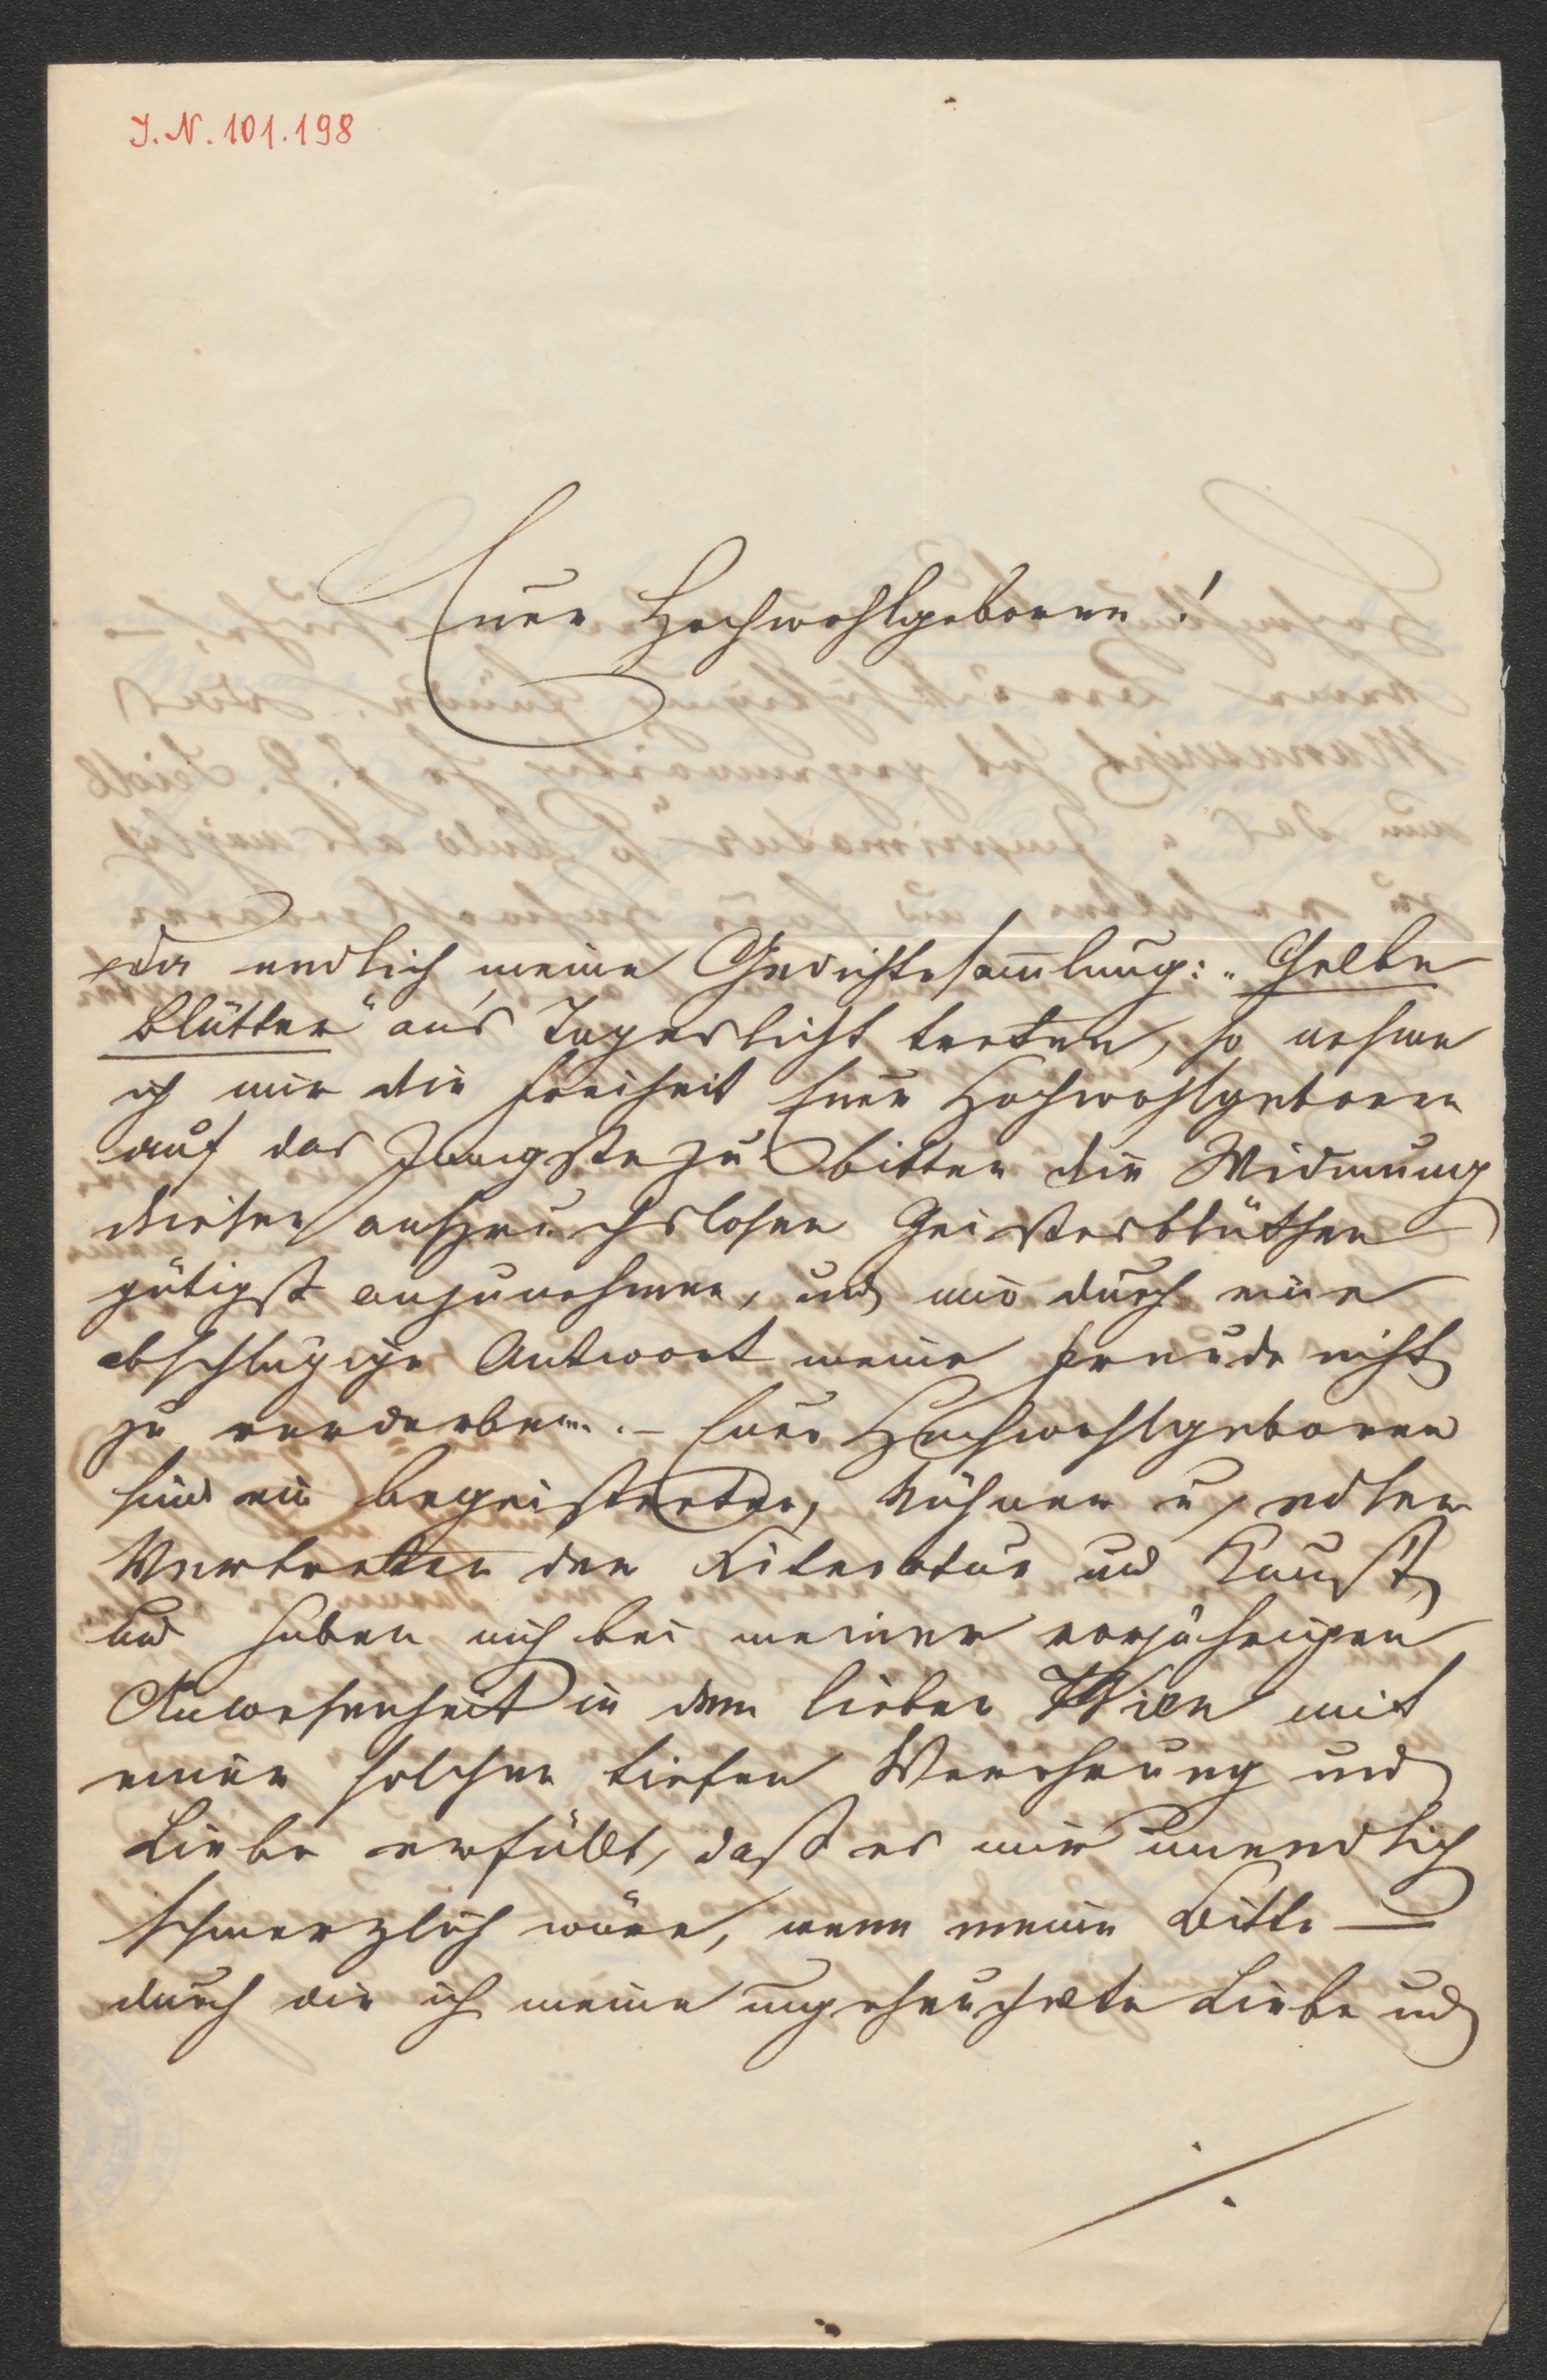 I. N. 101.198
Euer Hochwohlgeboren!
Da endlich meine Gedichtesammlung: „Gelbe
Blätter“ an's Tageslicht treten, so nehme
ich mir die Freiheit Euer Hochwohlgeboren
auf das zu bitten die Widmung
dieser anspruchslosen Geistesblüthen
gütigst anzunehmen, und mir durch eine
abschlägige Antwort meine Freude nicht
zu verderben. – Euer Hochwohlgeboren
sind ein begeisterter, kühner u. edler
Vertreter der Literatur und Kunst,
und haben mich bei meiner vorjährigen
Anwesenheit in dem lieben Wien mit
einer solchen tiefen Verehrung und
Liebe erfüllt, daß es mir unendlich
schmerzlich wäre, wenn meine Bitte —
durch die ich meine ungeheuchelte Liebe und
./.